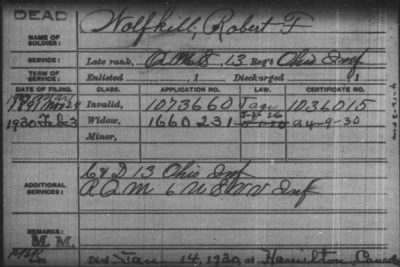 DEAD
NAME OF SOLDIER: Wolfkill, Robert F
SERVICE: Late rank, Q.M.S, 13 Reg't Ohio Inf
TERM OF SERVICE: Enlisted , 1 Discharged , 1
DATE OF FILING. CLASS. APPLICATION NO. LAW. CERTIFICATE NO.
Invalid, 1073660 1036015
1930 Feb 3 Widow, 1660231 A-9-30
Minor,
ADDITIONAL SERVICES: C & D 13 Ohio Inf
R Q M 6 U S V V Inf
REMARKS:
M. M.
Died Jan 14, 1930, at Hamilton, Canada